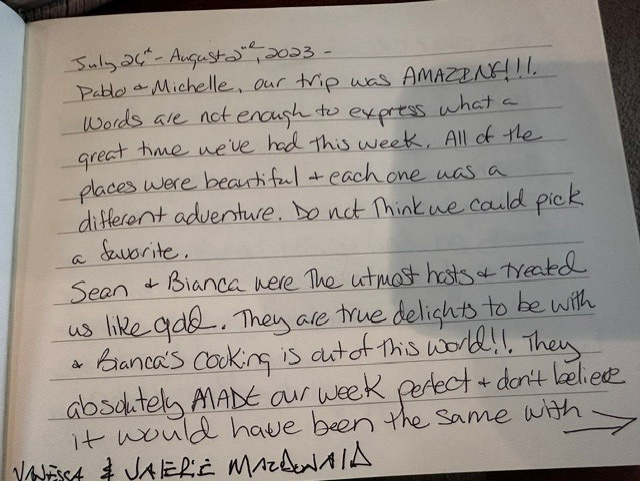 July 26th - August 2nd, 2023 -
Pablo & Michelle, our trip was AMAZING!!!.
Words are not enough to express what a
great time we've had this week. All of the
places were beautiful & each one was a
different adventure. Do not think we could pick
a favorite.
Sean & Bianca were the utmost hosts & treated
us like gold. They are true delights to be with
& Bianca's cooking is out of this world!!. They
absolutely MADE our week perfect & don't believe
it would have been the same with →
VANESSA & VALERIE MACDONALD